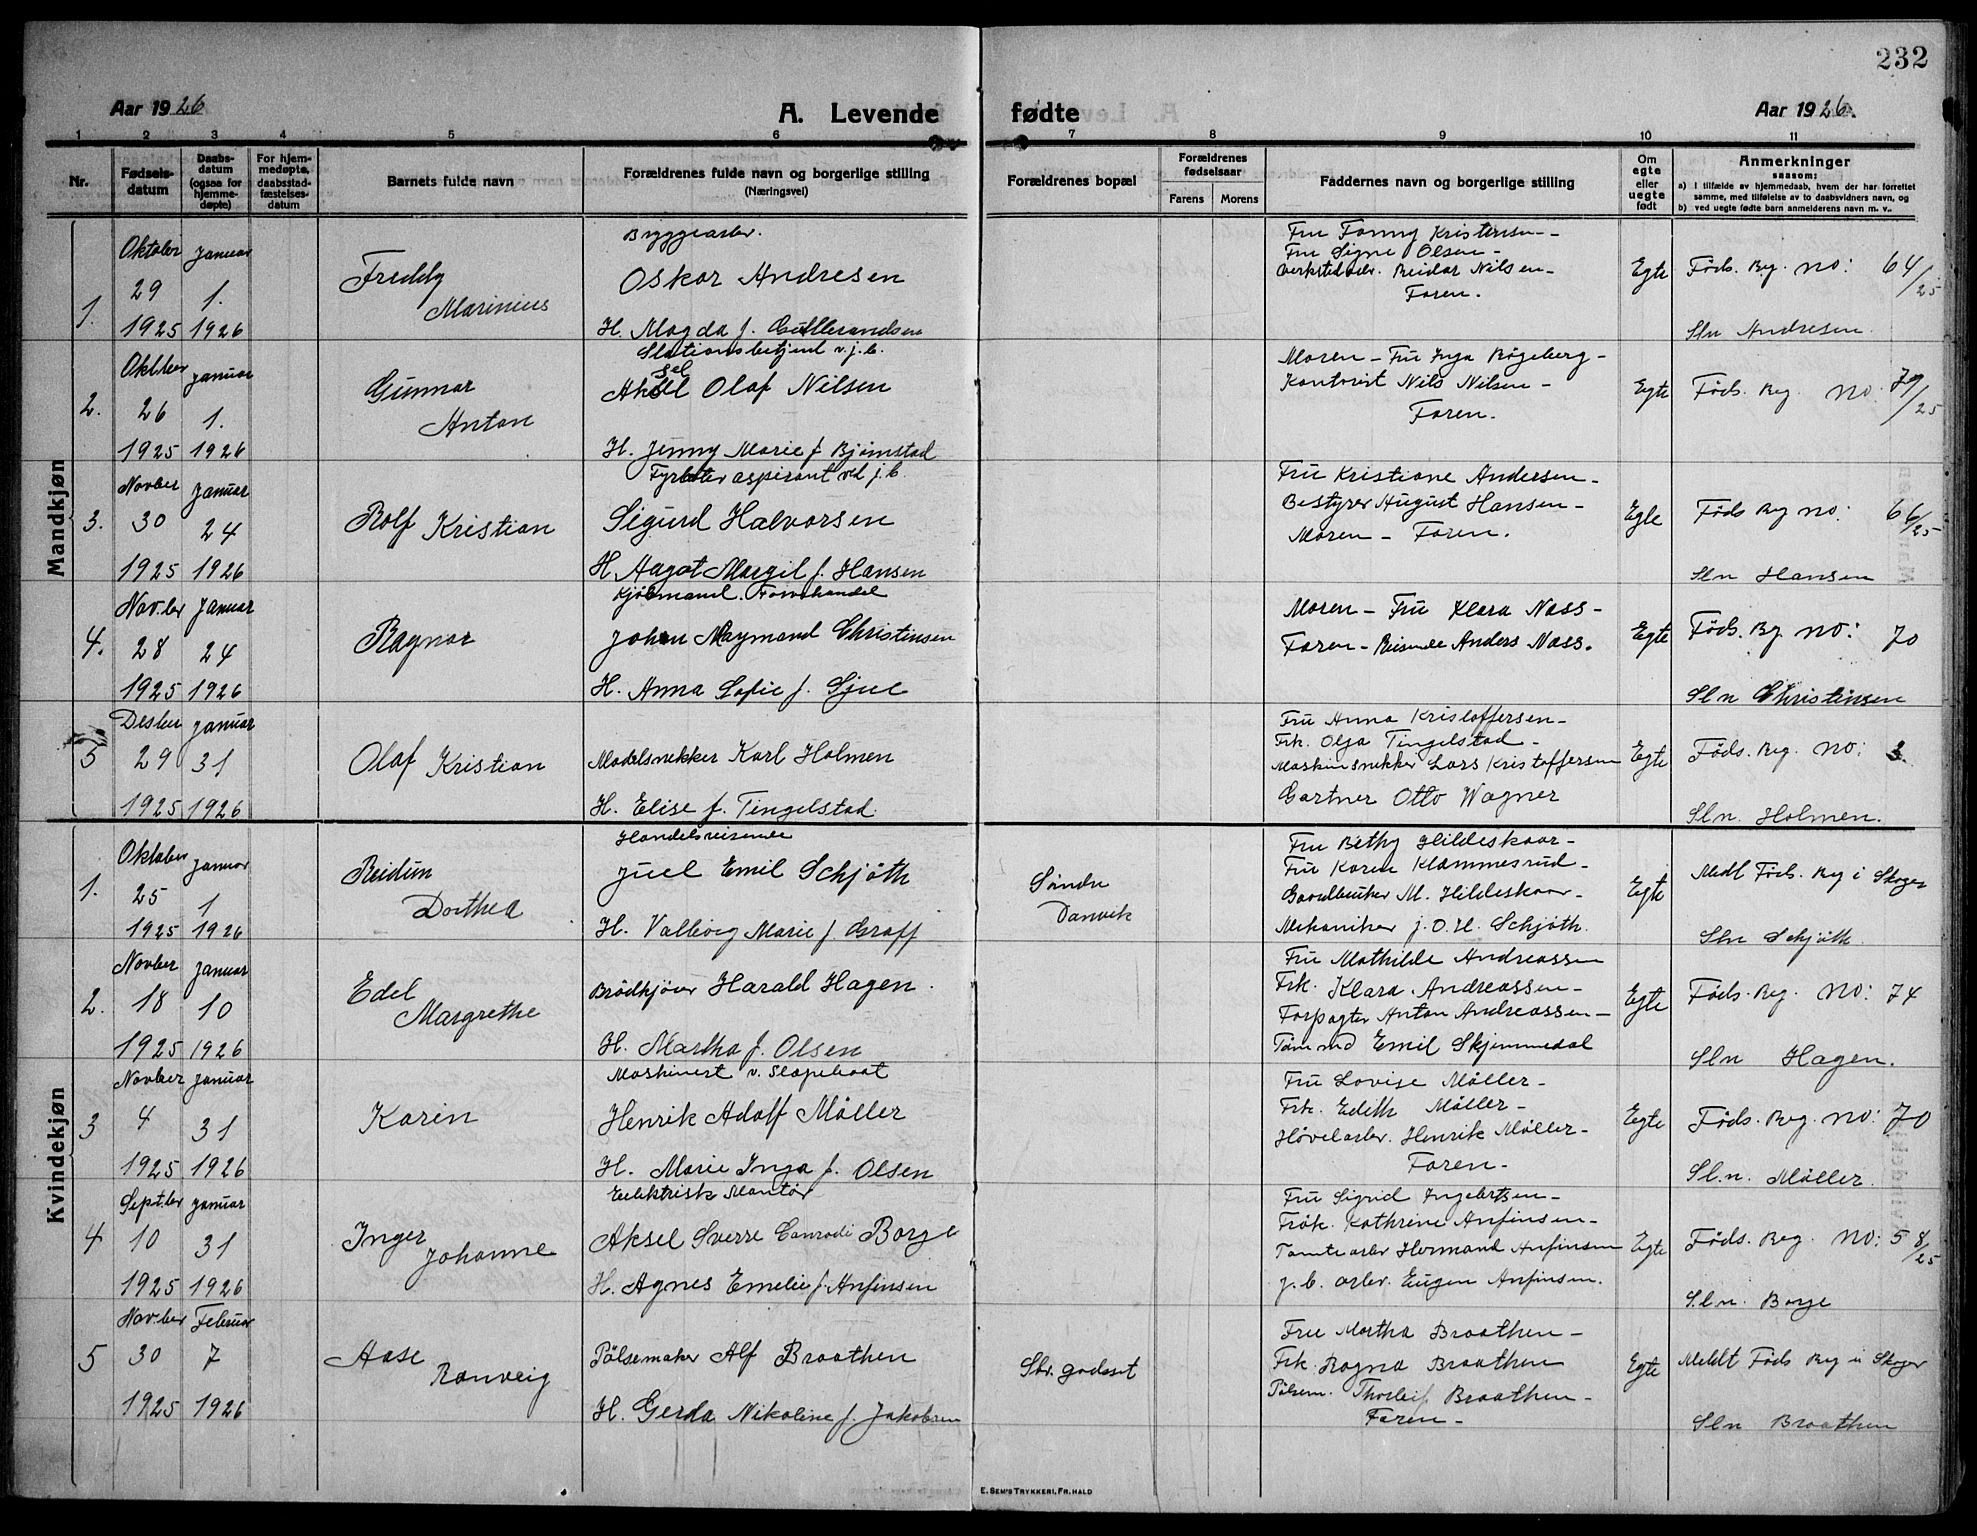 232
Aar 1926
A. Levende fødte
Aar 1926.
1 2 3 4 5 6 7 8 9 10 11
Nr.
Fødsels-datum
Daabs-datum (ogsaa for hjemme-døpte)
For hjem-medøpte, daabsstad-fæstelses-datum
Barnets fulde navn
Forældrenes fulde navn og borgerlige stilling (Næringsvei)
Forældrenes bopæl
Forældrenes fødselsaar
Farens Morens
Faddernes navn og borgerlige stilling
Om egte eller uegte født
Anmerkninger
saasom:
a) I tilfælde av hjemmedaab, hvem der har forrettet samme, med tilføielse av to daabsvidners navn, og
b) ved uegte fødte barn anmelderens navn m. v.
Mandkjøn
1.
Oktober 29 1925
Januar 1. 1926
Freddy Marinius
Bryggearb.
Oskar Andresen
H. Magda f. Gulbrandsen
Fru Fanny Kristensen -
Fru Signe Olsen -
Verkstedarb. Reidar Nilsen -
Faren.
Egte
Føds. Reg. no: 64/25
Sln Andresen
2.
Oktber 26 1925
Januar 1. 1926
Gunnar Anton
Stationsbetjent v. j. b.
Aksel Olaf Nilsen
H. Jenny Marie f. Bjørnstad
Moren - Fru Inga Bøgeberg -
Kontorist Nils Nilsen -
Faren.
Egte
Føds. Reg. no: 79/25
3.
Novber 30 1925
Januar 24 1926
Rolf Kristian
Fyrbøter aspirant ved j. b.
Sigurd Halvorsen
H. Aagot Margit f. Hansen
Fru Kristiane Andersen -
Bestyrer August Hansen -
Moren - Faren.
Egte
Føds Reg no: 66/25
Sln Hansen
4.
Nov.ber 28 1925
Januar 24 1926
Ragnar
Kjøbmand.
Johan Raymand Christinsen
H. Anna Sofie f. Gjul
Moren - Fru Klara Næss -
Faren - Reisende Anders Næss.
Egte
Føds. Reg. no: 70
Sln Christinsen
5
Desber 29 1925
Januar 31 1926
Olaf Kristian
Modelsnekker Karl Holmen
H. Elise f. Tingelstad
Fru Anna Kristoffersen -
Frk. Olga Tingelstad -
Maskinsnekker Lars Kristoffersen
Gartner Otto Wagner
Egte
Føds. Reg. no: 3.
Sln. Holmen.
Kvindekjøn
1.
Oktober 25 1925
Januar 1 1926
Reidun Dorthea
Handelsreisende
Juel Emil Schjøth
H. Valborg Marie f. Graff
Søndre Danvik
Fru Bethy Hildeskaar -
Fru Karen Klammesrud -
Gardbruker M. Hildeskaar -
Mekaniker J. O. H. Schjøth.
Egte
Meldt Føds. Reg i Skoger
Sln Schjøth
2.
Novber 18 1925
Januar 10 1926
Edel Margrethe
Brødkjører Harald Hagen.
H. Martha f. Olsen
Fru Mathilde Andreassen
Frk. Klara Andreassen -
Forpagter Anton Andreassen -
Tømmd Emil Skjemmedal
Egte
Føds. Reg. no: 74
Sln Hagen.
3
Novber 4 1925
Januar 31 1926
Karin
Maskinist v. Slæpebaat
Henrik Adolf Møller
H. Marie Inga f. Olsen
Fru Lovise Møller -
Frk. Edith Møller -
Høvelarbr. Henrik Møller -
Faren -
Egte
Føds. Reg. no: 70
Sl.n. Møller.
4
Septber 10 1925
Januar 31 1926
Inger Johanne
Elektrisk Mantør
Aksel Sverre Conradi Borge
H. Agnes Emelie f. Anfinsen
Fru Sigrid Ingebrtsen -
Frøk. Kathrine Anfinsen -
Tomtearbr Hermand Anfinsen
J. b. arbr. Eugen Anfinsen.
Egte
Føds. Reg. no: 58/25
S.l.n. Borge
5
Nov.ber 30 1925
Februar 7 1926
Aase Ranveig
Pølsemaker Alf Braathen
H. Gerda Nikoline f. Jakobsen
Str. godset
Fru Martha Braathen -
Frk. Ragna Braathen
Pølsem. Thorleif Braathen -
Faren -
Egte
Meldt Føds Reg i Skoger
Sln Braathen
E. SEM'S TRYKKERI, FR.HALD